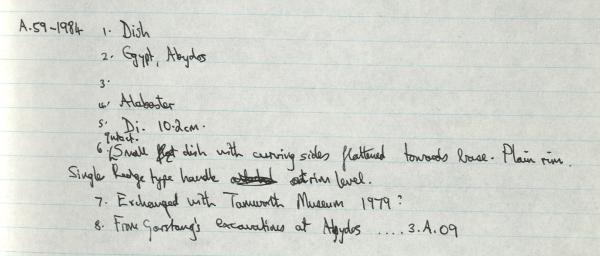 A.59-1984 1. Dish
2. Egypt, Abydos
3.
4. Alabaster
5. Di. 10.2cm.
Intact.
6. Small dish with curving sides flattened towards base. Plain rim.
Single ledge type handle at rim level.
7. Exchanged with Tamworth Museum 1979?
8. From Garstang's excavations at Abydos .... 3.A.09